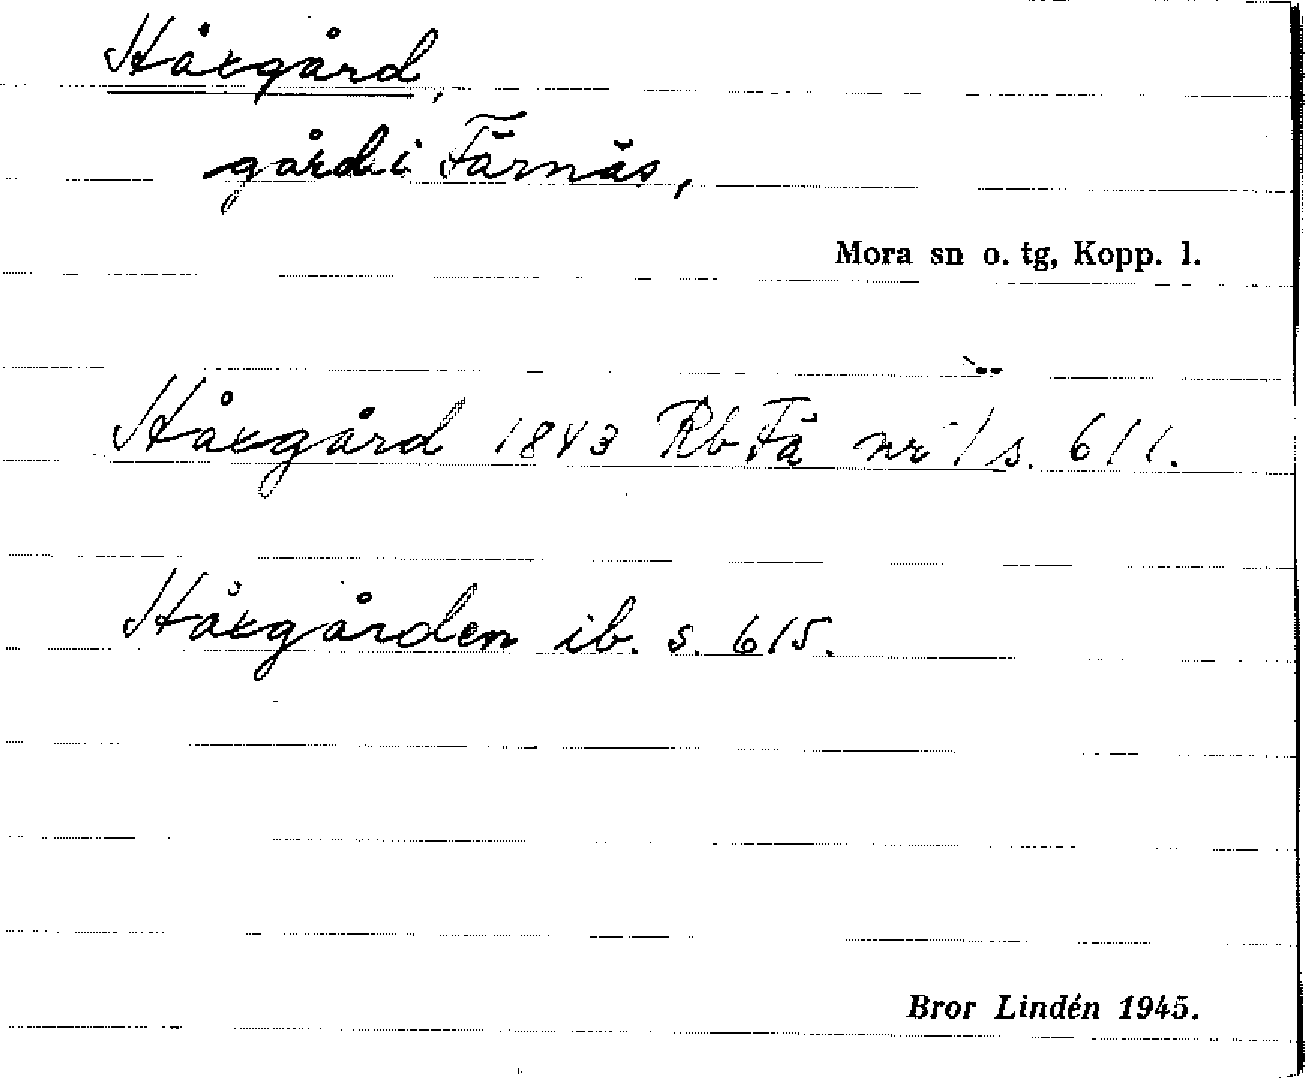 Håxgård,
gård i Färnäs,
Mora sn o. tg, Kopp. l.
Håxgård 1843 Rb Fä nr 1 s. 611.
Håxgården ib. s. 615.
Bror Lindén 1945.